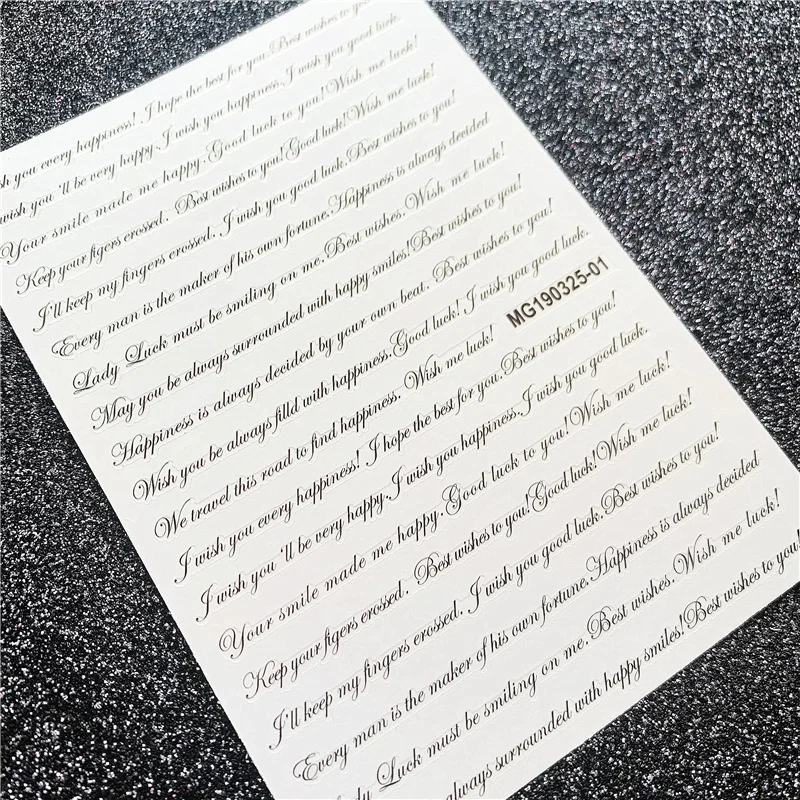 you every happiness! I hope the best for you.Best wishes to you
wish you 'll be very happy.I wish you happiness.I wish you good luck.
Your smile made me happy.Good luck to you!Wish me luck!
Keep your figers crossed. Best wishes to you!Good luck!Wish me luck!
I'll keep my fingers crossed. I wish you good luck.Best wishes to you!
Every man is the maker of his own fortune.Happiness is always decided
Lady Luck must be smiling on me.Best wishes.Wish me luck!
May you be always surrounded with happy smiles!Best wishes to you!
Happiness is always decided by your own beat. Best wishes to you!
Wish you be always filld with happiness.Good luck! I wish you good luck.
We travel this road to find happiness. Wish me luck!
MG190325-01
I wish you every happiness! I hope the best for you.Best wishes to you!
I wish you 'll be very happy.I wish you happiness.I wish you good luck.
Your smile made me happy.Good luck to you!Wish me luck!
Keep your figers erossed. Best wishes to you!Good luck!Wish me luck!
I'll keep my fingers erossed. I wish you good luck.Best wishes to you!
Every man is the maker of his own fortune.Happiness is always decided
Lady Luck must be smiling on me.Best wishes.Wish me luck!
always surrounded with happy smiles!Best wishes to you!